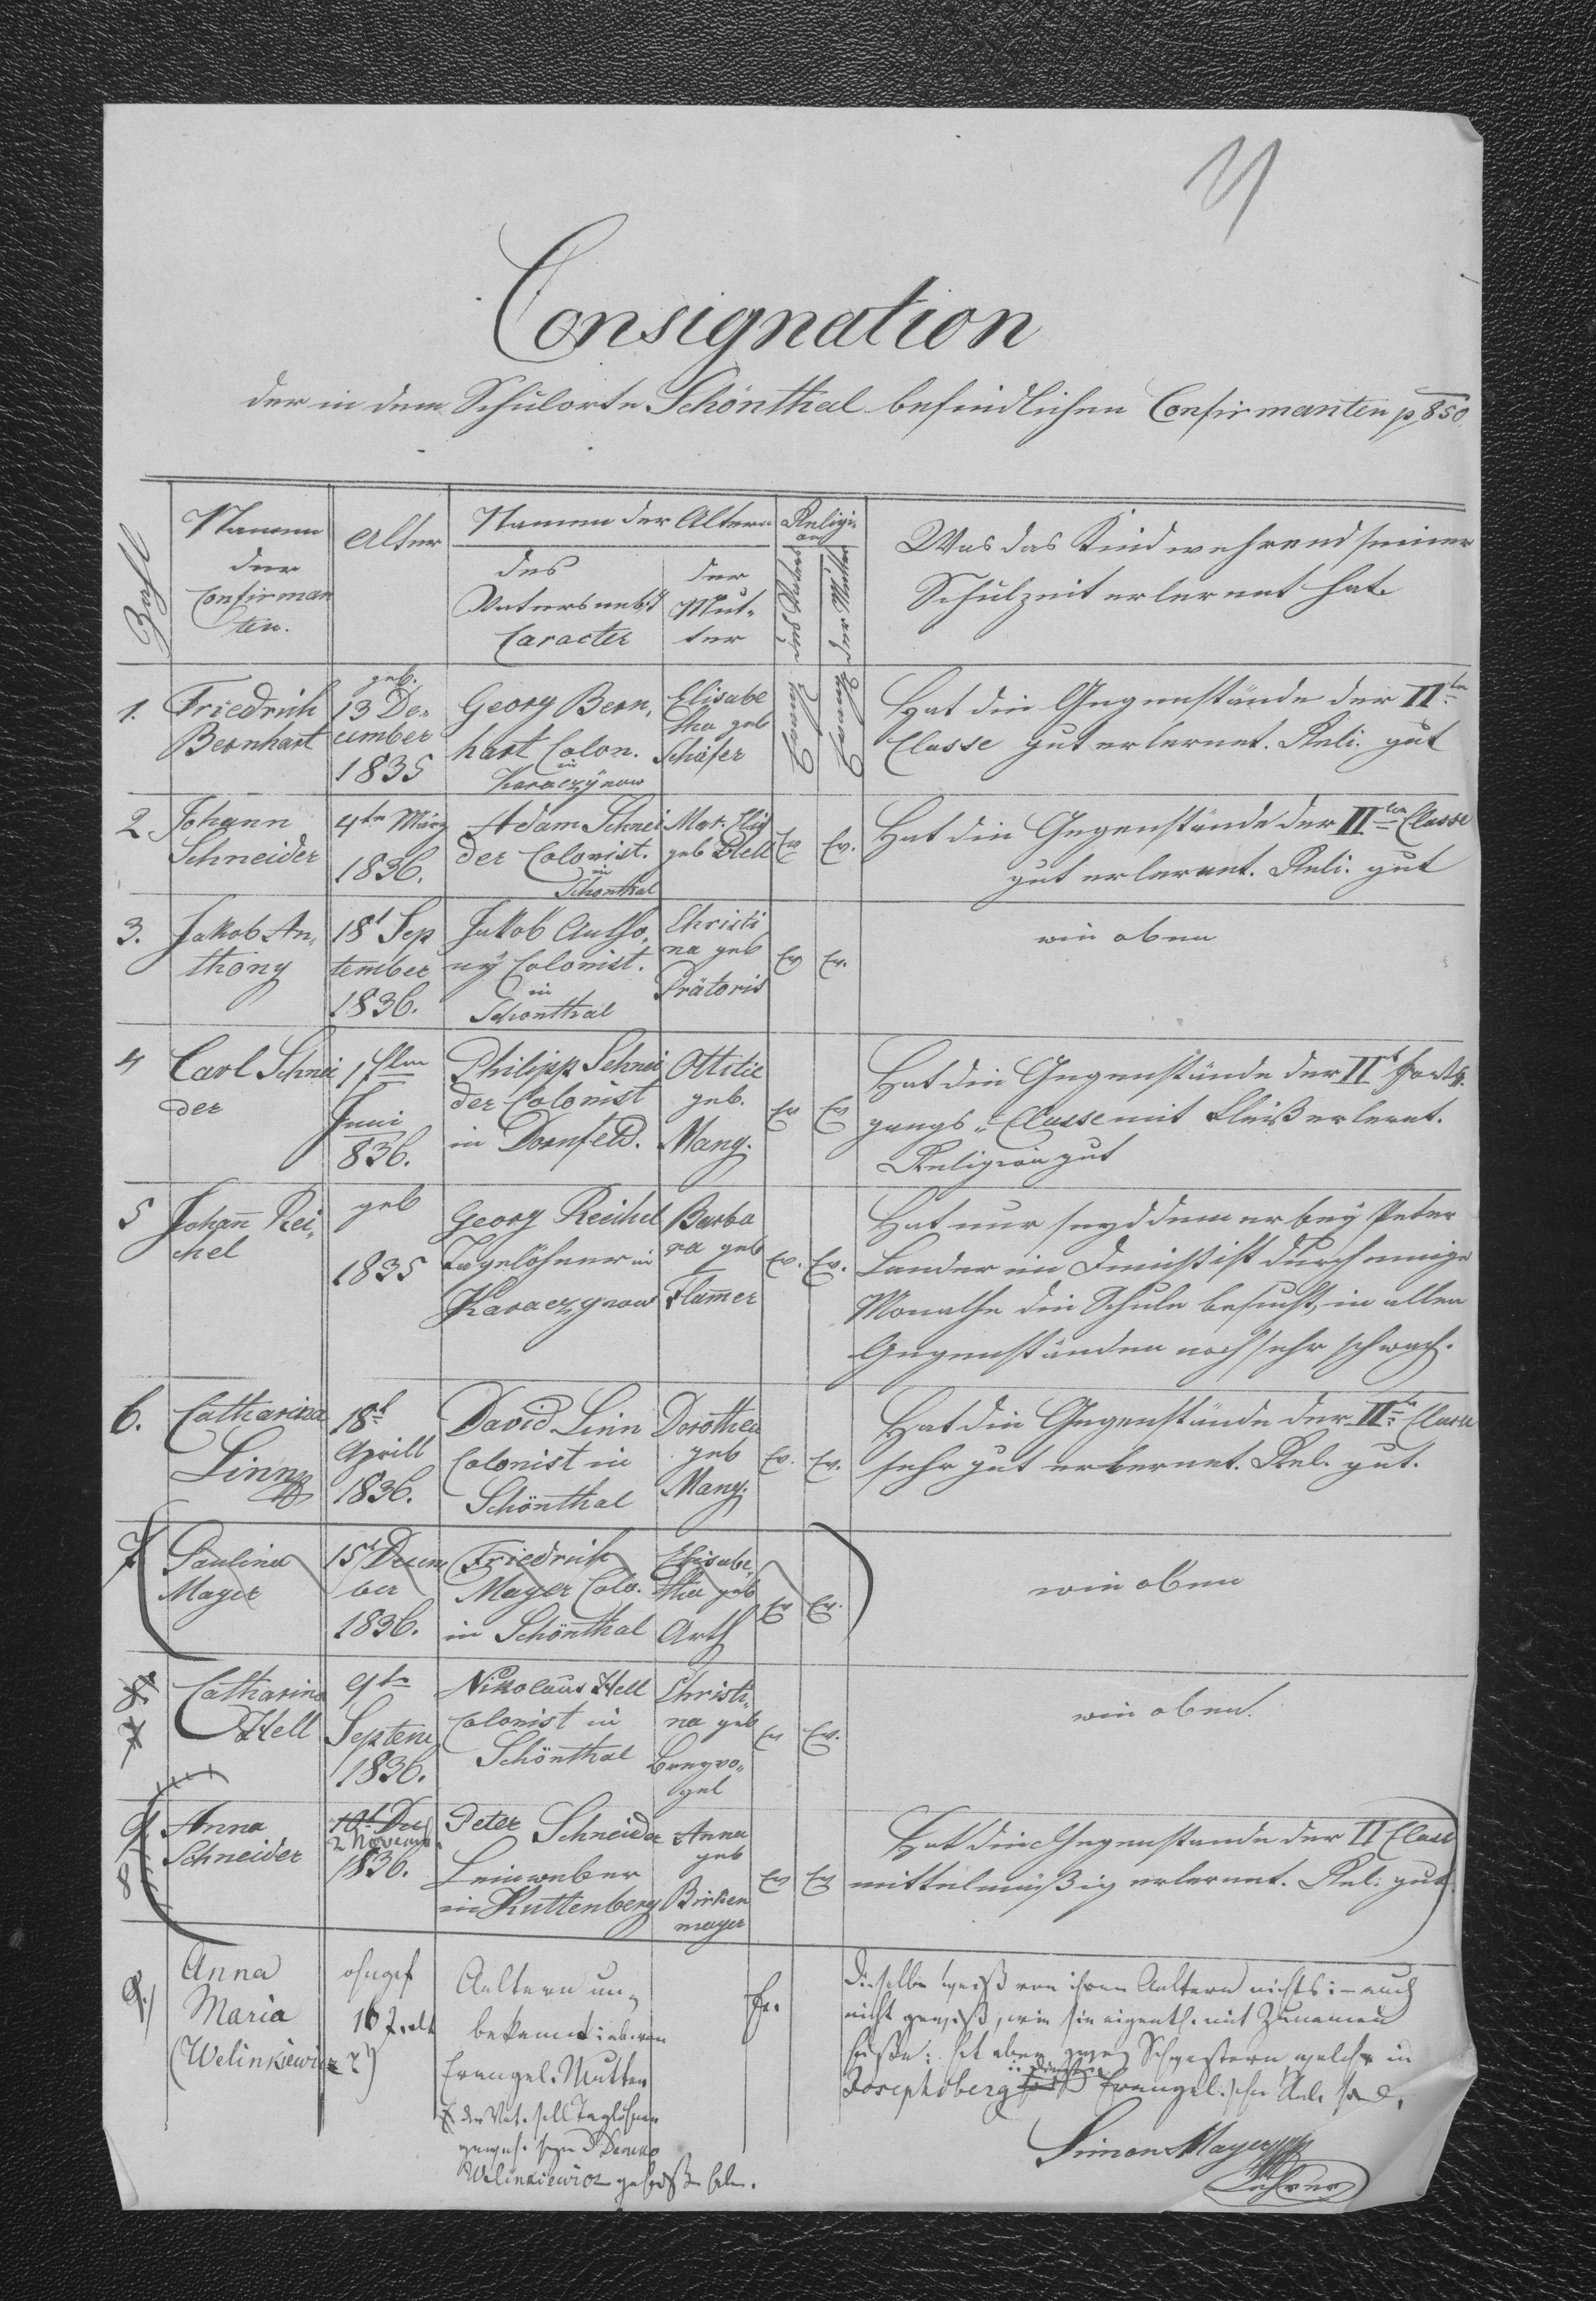 Consignation
der in dem Schulorte Schönthal befindlichen Confirmanten p 850
Zahl
Namen
der
Confirman
ten.
Alter
Namen der Altern
des
Vaters nebst
Caracter
der
Mut-
ter
Religi-
on
des Vaters
der Mutter
Was das Kind wehrend seiner
Schulzeit erlernt hat.
1.
Friedrich
Bernhart
geb.
13 De-
cember
1835
Georg Bern,
hart Colon.
in
Karaczÿnow
Elisabe
tha geb
Schäfer
Evang
Evang
Hat die Gegenstände der IIten
Classe gut erlernet. Reli. gut
2
Johann
Schneider
4tn März
1836.
Adam Schnei
der Colonist.
in
Schönthal
Mar. Elis
geb
Ev
Ev.
Hat die Gegenstände der IIten Classe
gut erlernet. Reli. gut
3.
Jakob An,
thony
18t Sep
tember
1836.
Jakob Antho,
nÿ Colonist.
in
Schönthal
Christi
na geb
Prätoris
Ev
Ev.
wie oben
4
Carl Schnei
der
1
Juni
836.
Philipp Schnei
der Colonist
in Dornfeld.
Ottilie
geb.
Mang.
Ev
Ev
Hat die Gegenstände der IIt Fort,
gangs-Classe mit Fleiß erlernt.
Religion gut
5
Johañ Rei,
chel
geb
1835
Georg Reichel
Tagelöhner in
Karaczynow
Barba
ra geb
Flam̃er
Ev.
Ev.
Hat nur seyddem er beÿ Peter
Lander im Dienst ist durch einige
Monathe die Schule besucht, in allen
Gegenständen noch sehr schwach.
6.
Catharina
Linn
18t
Aprill
1836.
David Linn
Colonist in
Schönthal
Dorothea
geb
Mang.
Ev.
Ev.
Hat die Gegenstände der IIte Classe
sehr gut erlernet. Rel. gut.
7
Paulina
Mayer
15t Decem
ber
1836.
Friedrich
Mayer Colo.
in Schönthal
Elisabe,
tha geb
Arth
Ev
Ev.
wie oben
8.
7
Catharina
Hell
9tn
Septem
1836.
Nikolaus Hell
Colonist in
Schönthal
Christi,
na geb
Bregvo-
gel
Ev
Ev.
wie oben.
9.
8
Anna
Schneider
10t Dec
2 Novemb.
1836.
Peter Schneider
Leinweber
in Kuttenberg
Anna
geb
Birken
mayer
Ev
Ev
Hat die Gegenstande der II Classe
mittelmäßig erlernet. Rel: gut
9.)
Anna
Maria
(Welinkiewicz ?)
ohngef
16 J. alt
Aeltern un-
bekannt: eben von
Evangel. Mutter
der Vat. soll Taglöhner
gewes. seyn
Welinkiewicz geheißen hbn.
Ev.
Dieselbe weiß von ihren Aeltern nichts:- auch
nicht gewiß, wie sie eigentl. mit Zunamen
heiße: hat aber zwey Schwestern welche in
Josephsberg
in Diensten
Evangel. Rel. sind.
Simon Mayer
Lehrer